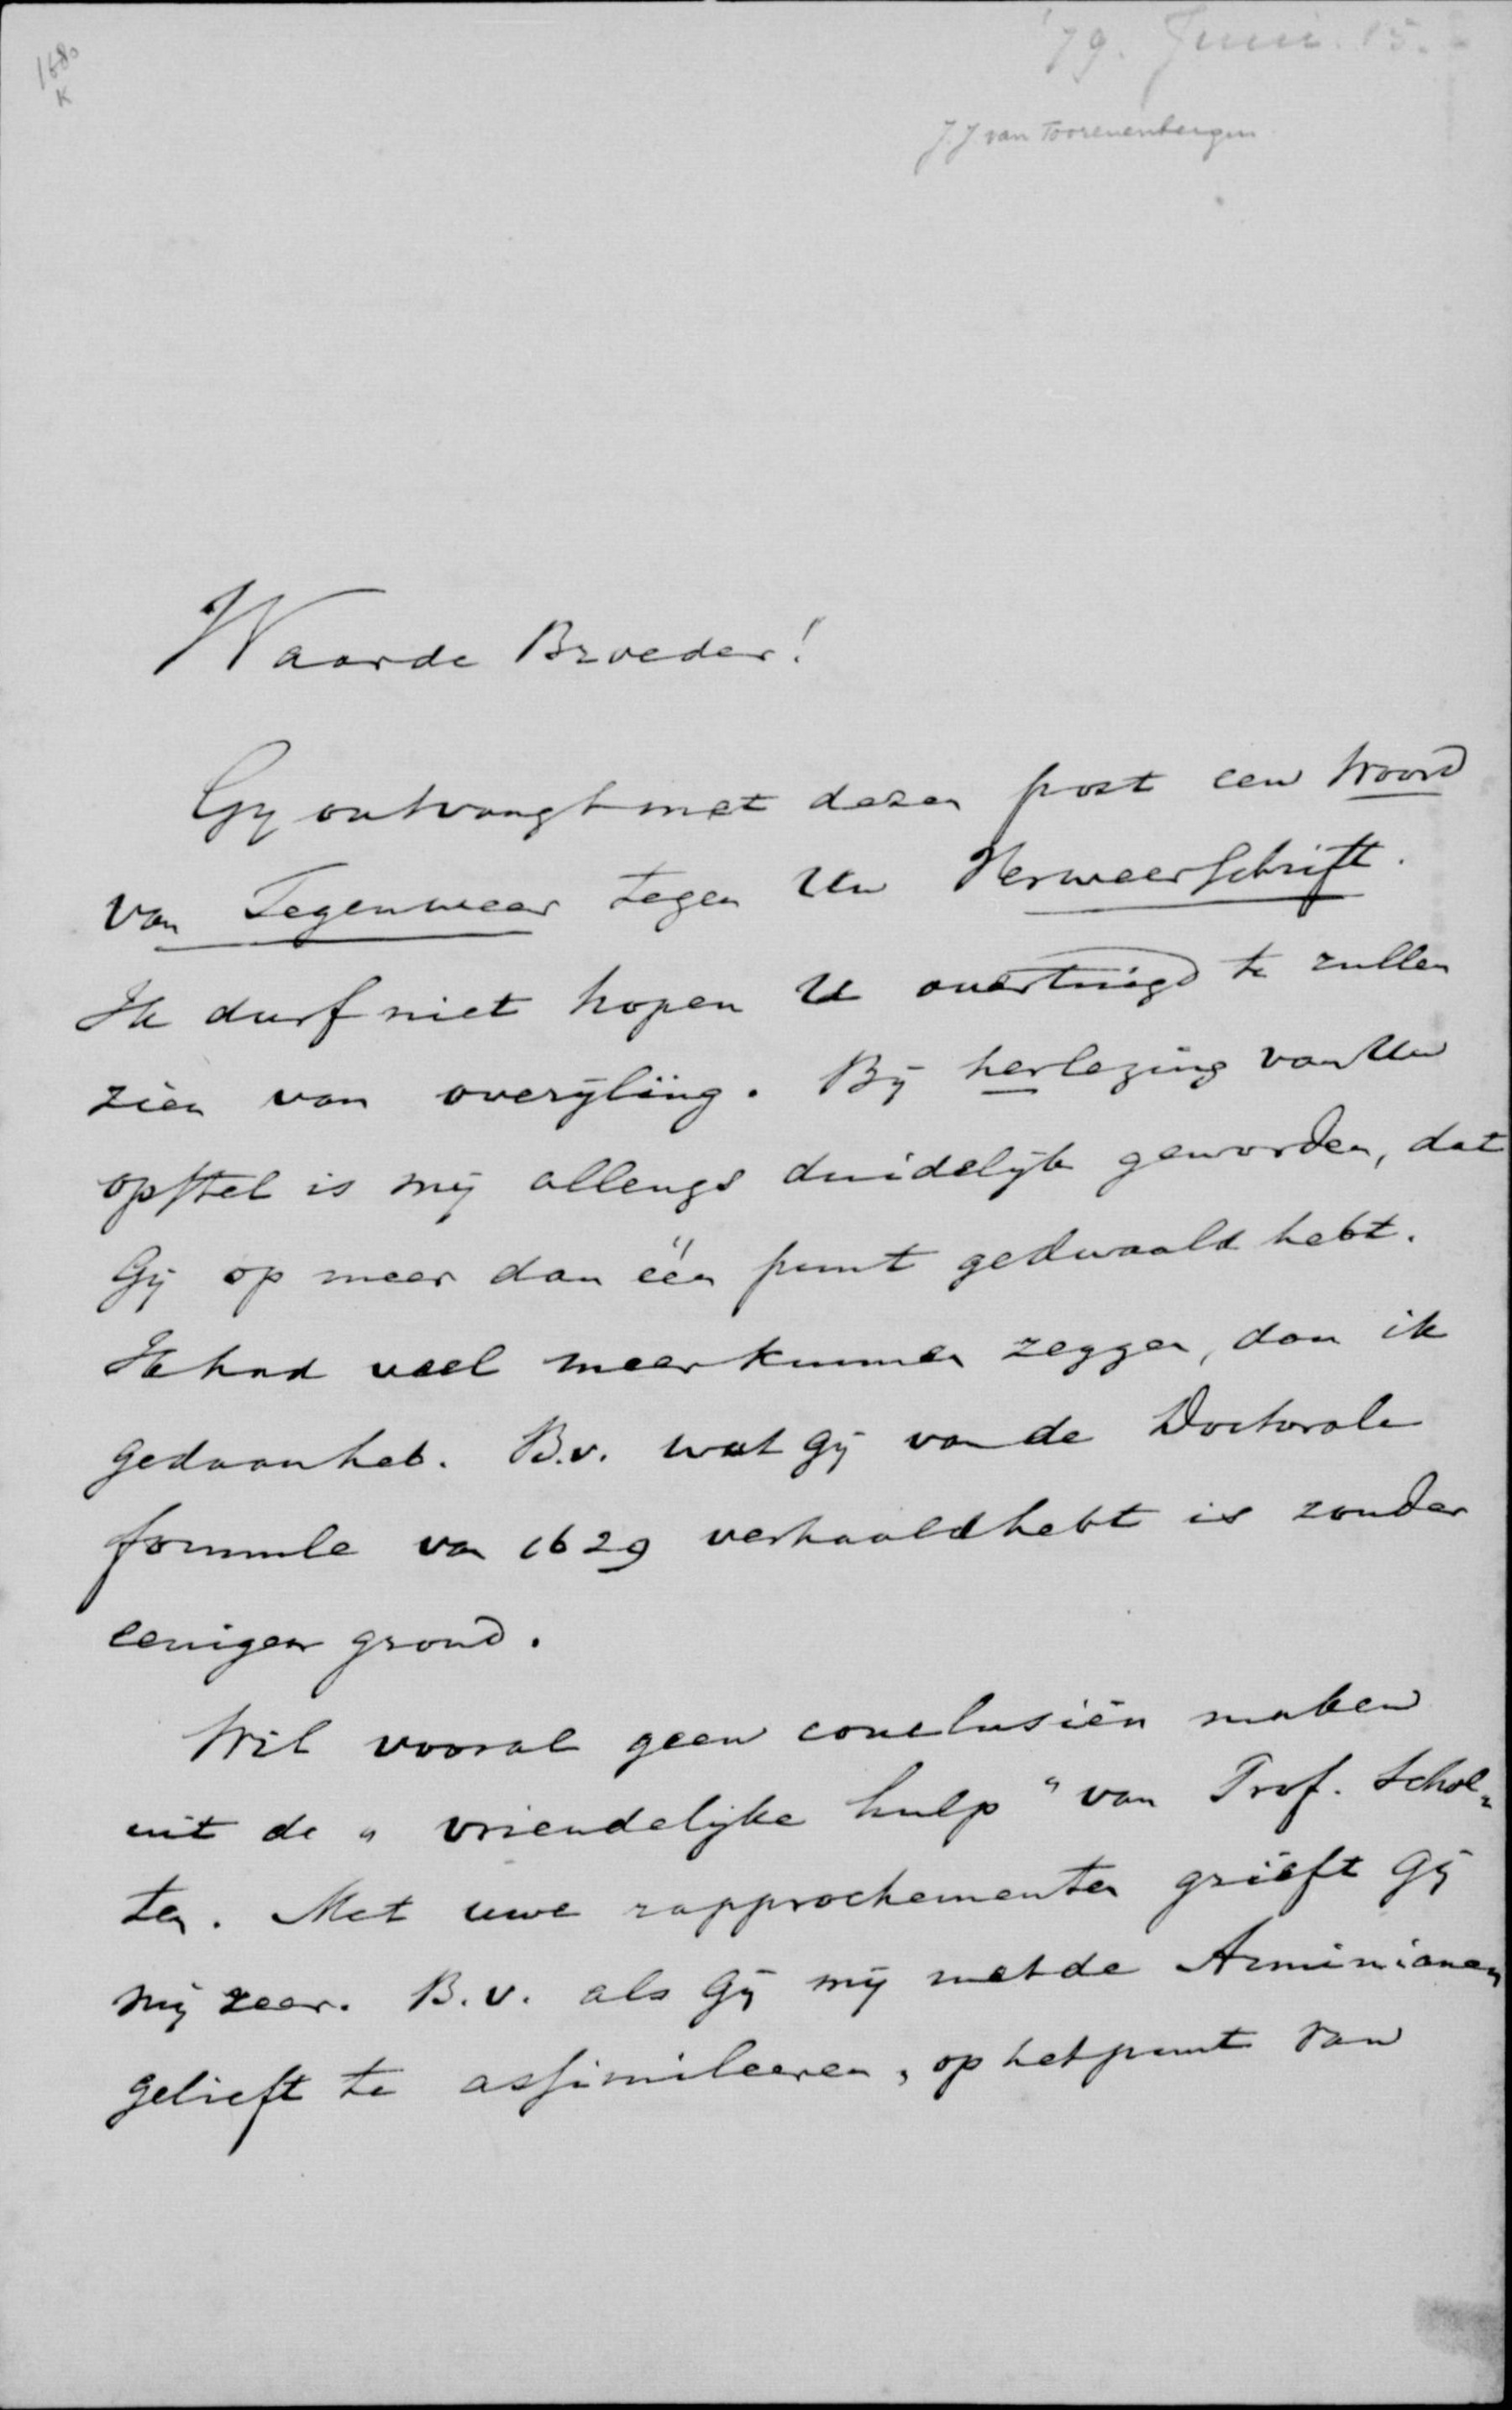 1680
K
'79. Juni. 15.
J J van Toorenenbergen
Waarde Broeder!
Gij ontvangt met dezen post een Woord
van Tegenweer tegen Uw Verweerschrift.
Ik durf niet hopen U overtuigd te zullen
zien van overijling. Bij herlezing van Uw
opstel is mij allengs duidelijk geworden, dat
Gij op meer dan één punt gedwaald hebt.
Ik had veel meer kunnen zeggen, dan ik
gedaan heb. B.v. wat gij van de Doctorale
formule van 1629 verhaald hebt is zonder
eenigen grond.
Wil vooral geen conclusiën maken
uit de „vriendelijke hulp" van Prof. Schol-
ten. Met uwe rapprochementen grieft gij
mij zeer. B.v. als Gij mij met de Arminianen
gelieft te assimileeren, op het punt van